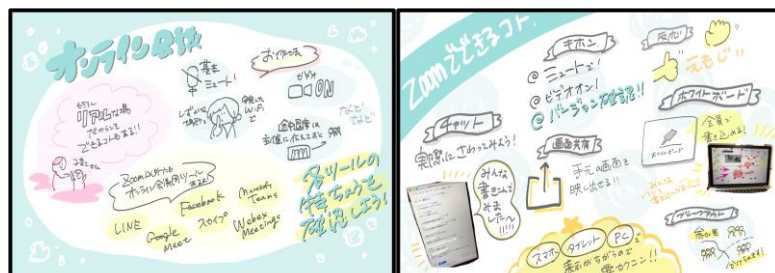 オンライン会議
もちろん
リアルな場
だからこそ
できるコトもある!!
基本
ミュート!
おやくそく
しずかな
場所で
安定した
Wi-Fi
で
ビデオ
ON
途中退席は
主催に伝えておく
などなど
Zoom以外にも
オンライン会議用ツール
あるよ!
LINE
Facebook
Microsoft
Teams
Google
Meet
スカイプ
Webex
Meetings
各ツールの
特ちょうを
確認しよう!
Zoomでできるコト
キホン
@ミュートで!
@ビデオオン!
@バージョン確認!!
反応
えもじ
チャット
実際にさわってみよう!
みんな
書きこんで
みま
した〜
!!!!
画面共有
手元の画面を
映し出せる!!
ホワイトボード
ホワイトボード
全員で
書き込める!
みんなで
ブレークアウト
スマホ
タブレット
PC
で
表示がちがうので
要カクニン!!